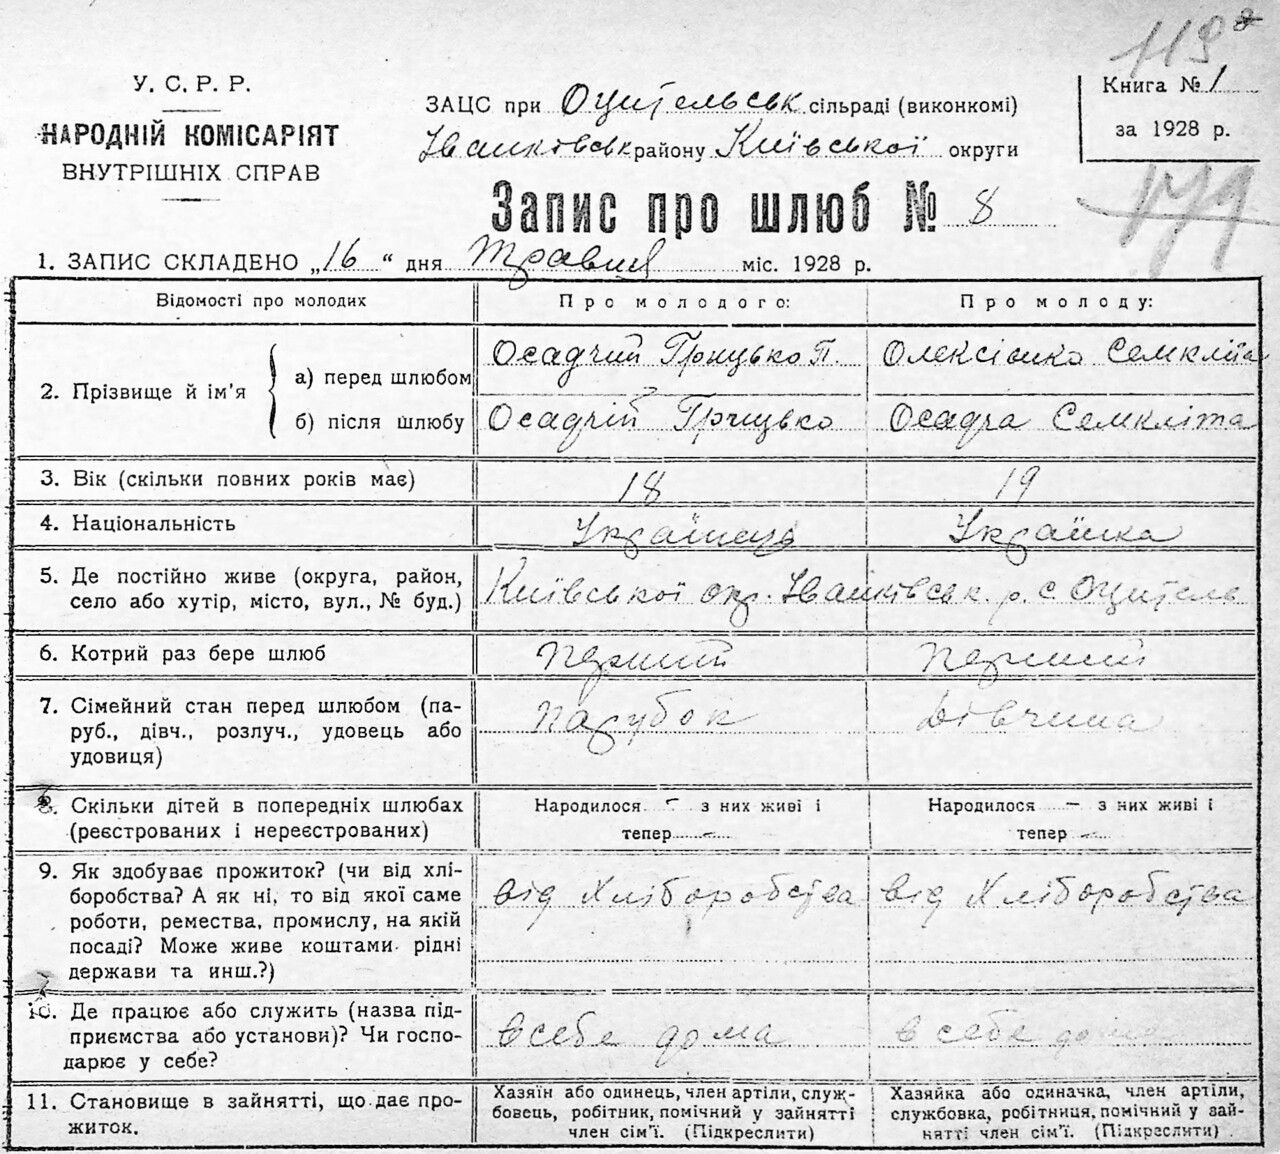 119
У. С. Р. Р.
НАРОДНІЙ КОМІСАРІЯТ
ВНУТРІШНІХ СПРАВ
ЗАЦС при Оцительськ сільраді (виконкомі)
Іванковськ району Київської округи
Книга № 1
за 1928 р.
179
Запис про шлюб № 8
1. ЗАПИС СКЛАДЕНО „16“ дня травця міс. 1928 р.
Відомості про молодих
Про молодого:
Про молоду:
2. Прізвище й ім’я
а) перед шлюбом
Осадчий Грицько П.
Олексієнко Семкліта
б) після шлюбу
Осадчій Грицько
Осадча Семкліта
3. Вік (скільки повних років має)
18
19
4. Національність
Українець
Українка
5. Де постійно живе (округа, район,
село або хутір, місто, вул., № буд.)
Київської окр. Іванківськ. р. с Оцитель
6. Котрий раз бере шлюб
перший
перший
7. Сімейний стан перед шлюбом (па-
руб., дівч., розлуч., удовець або
удовиця)
парубок
дівчина
8. Скільки дітей в попередніх шлюбах
(реєстрованих і нереєстрованих)
Народилося - з них живі і
тепер -
Народилося - з них живі і
тепер -
9. Як здобуває прожиток? (чи від хлі-
боробства? А як ні, то від якої саме
роботи, ремества, промислу, на якій
посаді? Може живе коштами рідні
держави та инш.?)
від Хліборобства
від Хліборобства
10. Де працює або служить (назва під-
приємства або установи)? Чи госпо-
дарює у себе?
в себе дома
в себе дома
11. Становище в зайнятті, що дає про-
житок.
Хазяїн або одинець, член артілі, служ-
бовець, робітник, помічний у зайнятті
член сім’ї. (Підкреслити)
Хазяйка або одиначка, член артіли,
службовка, робітниця, помічний у зай-
нятті член сім’ї. (Підкреслити)